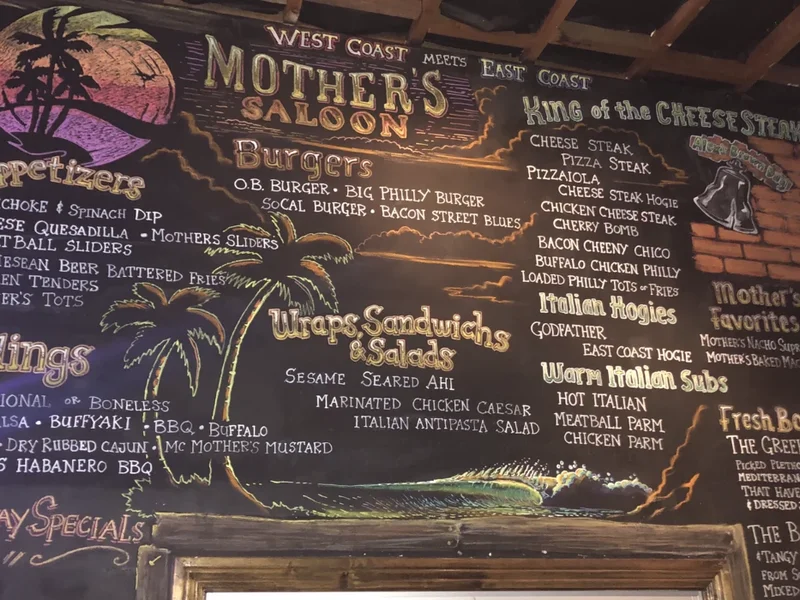 WEST COAST MEETS EAST COAST
MOTHER'S
SALOON
ppetizers
ICHOKE & SPINACH DIP
ESE QUESADILLA • MOTHERS SLIDERS
TBALL SLIDERS
MESEAN BEER BATTERED FRIES
EN TENDERS
ER'S TOTS
lings
IONAL OR BONELESS
ALSA • BUFFYAKI • BBQ • BUFFALO
• DRY RUBBED CAJUN • MC MOTHER'S MUSTARD
S HABANERO BBQ
AY SPECIALS
Burgers
O.B. BURGER • BIG PHILLY BURGER
SOCAL BURGER • BACON STREET BLUES
Wraps, Sandwichs
& Salads
SESAME SEARED AHI
MARINATED CHICKEN CAESAR
ITALIAN ANTIPASTA SALAD
KING of the CHEESESTEAK
CHEESE STEAK
PIZZA STEAK
PIZZAIOLA
CHEESE STEAK HOGIE
CHICKEN CHEESE STEAK
CHERRY BOMB
BACON CHEENY CHICO
BUFFALO CHICKEN PHILLY
LOADED PHILLY TOTS OR FRIES
Italian Hogies
GODFATHER
EAST COAST HOGIE
Warm Italian Subs
HOT ITALIAN
MEATBALL PARM
CHICKEN PARM
Mother's
Favorites
MOTHER'S NACHO SUPR
MOTHER'S BAKED MAC
Fresh Bo
THE GREE
PICKED PLETHO
MEDITERRAN
THAT HAVE
& DRESSED
THE B
& TANGY
FROM SO
MIXED